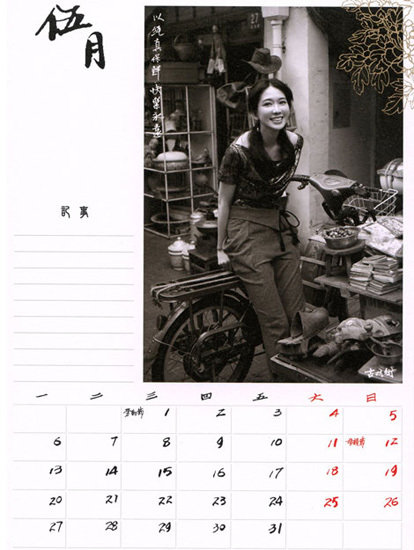 伍月
以純真保鮮 快樂永遠
記事
一 二 三 四 五 六 日
勞動節 1 2 3 4 5
6 7 8 9 10 11 母親節 12
13 14 15 16 17 18 19
20 21 22 23 24 25 26
27 28 29 30 31